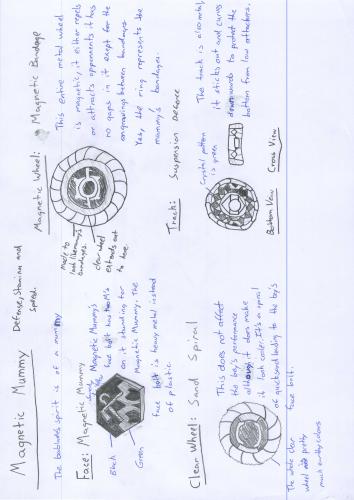 Magnetic Mummy
Defense, Stamina and
Speed.
The beyblade's spirit is of a mummy
Face: Magnetic Mummy
Magnetic Mummy's
face bolt has two M's
on it standing for
Magnetic Mummy. The
face bolt is heavy metal instead
of plastic.
Black
Green
Magnetic Wheel: Magnetic Bandage
This entire metal wheel
is magnetic, it either repels
or attracts opponents it has
no gaps in it except for the
engravings between bandages.
Yes, the ring represents the
mummy's bandages.
made to
look like mummy's
bandages.
clear wheel
extends out
to here.
Clear Wheel: Sand Spiral
This does not affect
the bey's performance
although it does make
it look cooler. It's a spiral
of quicksand leading to the bey's
face bolt.
The whole clear
wheel is pretty
much earthy colors
Track: Suspension Defence
Crystal pattern
is green
The track is also metal,
it sticks out and curves
downwards to protect the
bottom from low attackers.
Bottom View
Cross View